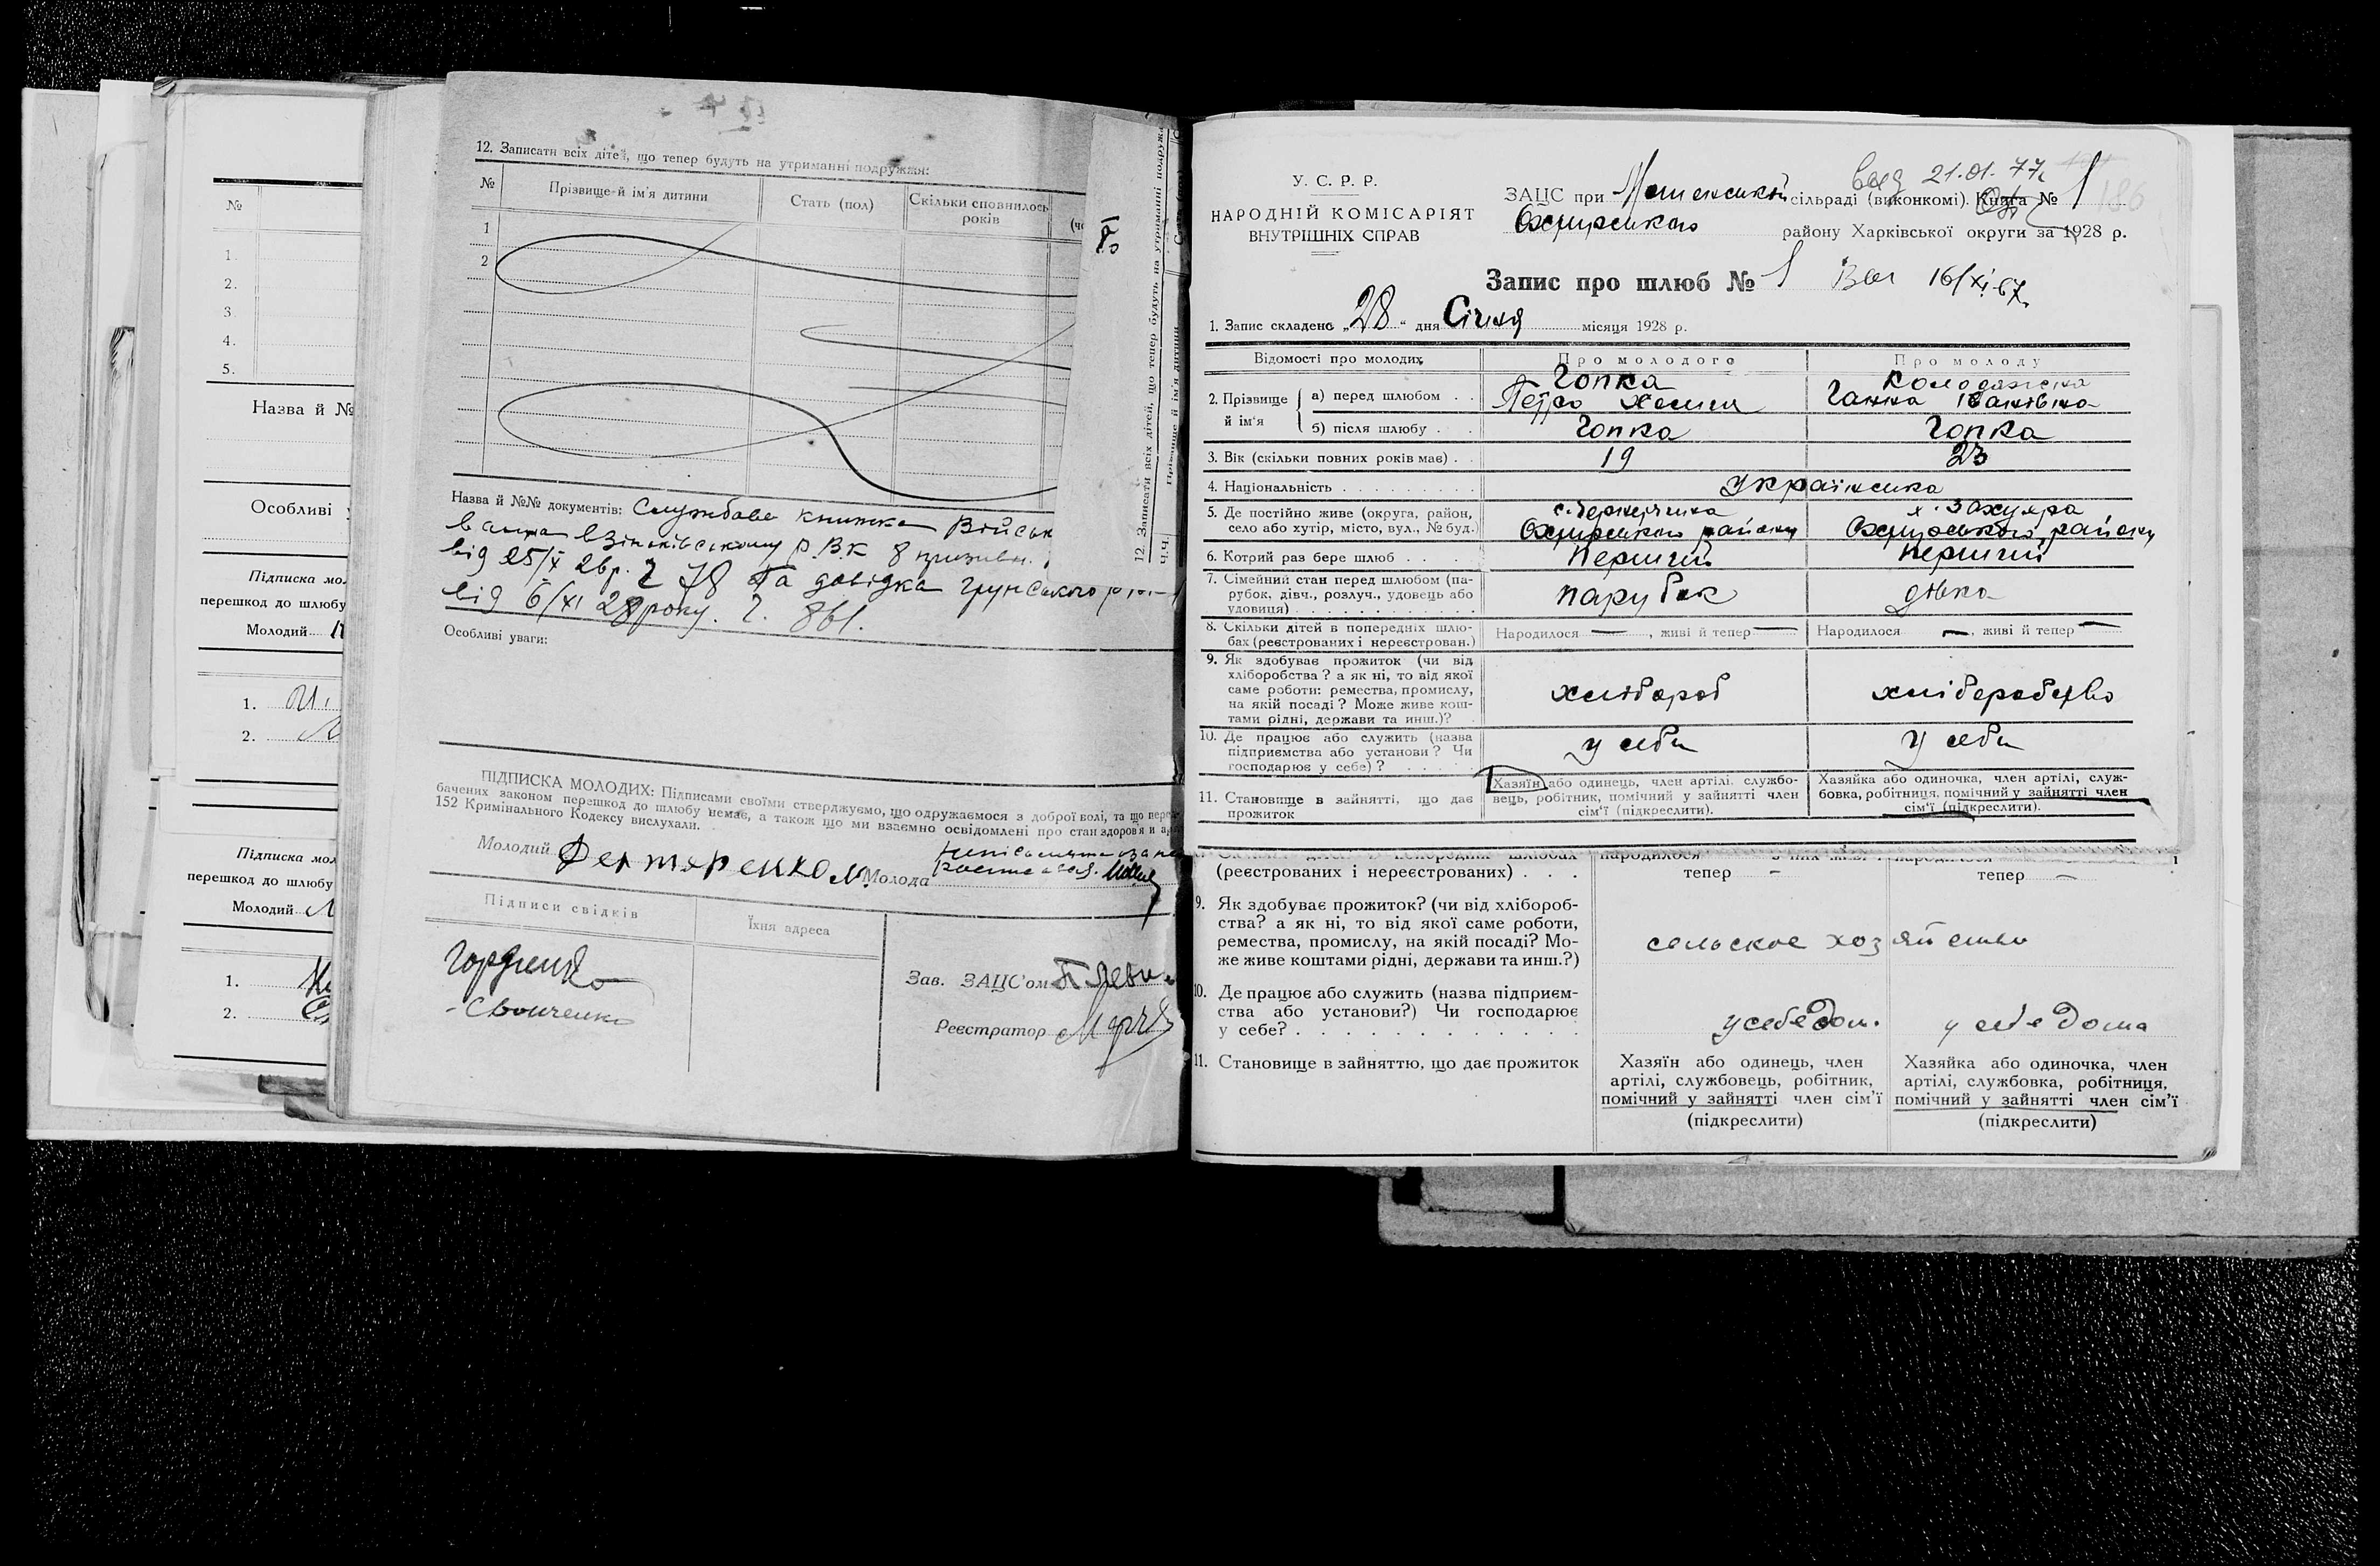 №
1.
2.
3.
4.
5.
Назва й №
Особливі
Підписка мол
перешкод до шлюбу
Молодий
1.
2.
Підписка мол
перешкод до шлюбу
Молодий
1.
2.
12. Записати всіх дітей, що тепер будуть на утриманні подружжя:
№
Прізвище й ім'я дитини
Стать (пол)
Скільки сповнилось
років
1
2
Назва й №№ документів: Службова книжка Військ
видана Зіньківському Р.В.К 8 призивн.
від 25/X 26 р. Ч 78 та довідка Грунського
від 6/XI 28 року. Ч. 861.
Особливі уваги:
ПІДПИСКА МОЛОДИХ: Підписами своїми стверджуємо, що одружаємося з доброї волі, та що пере
бачених законом перешкод до шлюбу немає, а також що ми взаємно освідомлені про стан здоров'я и
152 Кримінального Кодексу вислухали.
Молодий
Молода
Підписи свідків
Їхня адреса
Гордієнко
Зав. ЗАЦС'ом
Реєстратор
12. Записати всіх дітей, що тепер будуть на утриманні подружж
Прізвище й ім'я дитини
Ч.Ч.
У. С. Р. Р.
НАРОДНІЙ КОМІСАРІЯТ
ВНУТРІШНІХ СПРАВ
21.01.77г
ЗАЦС при сільраді (виконкомі). Книга № 1
186
Охтирського району Харківської округи за 1928 р.
Запис про шлюб № 1 16/XI-67г.
1. Запис складено „28“ дня Січня місяця 1928 р.
Відомості про молодих
Про молодого
Про молоду
2. Прізвище й ім'я
а) перед шлюбом
Гопка
Петро
Колодяжна
Ганна Іванівна
б) після шлюбу
Гопка
Гопка
3. Вік (скільки повних років має)
19
23
4. Національність
Українська
5. Де постійно живе (округа, район,
село або хутір, місто, вул., № буд.)
Охтирського району
х.
Охтирського району
6. Котрий раз бере шлюб
Перший
Перший
7. Сімейний стан перед шлюбом (па-
рубок, дівч., розлуч., удовець або
удовиця)
парубок
дівка
8. Скільки дітей в попередніх шлю-
бах (реєстрованих і нереєстрован.)
Народилося —, живі й тепер —
Народилося —, живі й тепер —
9. Як здобуває прожиток (чи від
хліборобства? а як ні, то від якої
саме роботи: ремества, промислу,
на якій посаді? Може живе кош-
тами рідні, держави та инш.)?
хлібороб
хліборобство
10. Де працює або служить (назва
підприємства або установи? Чи
господарює у себе)?
у себе
у себе
11. Становище в зайнятті, що дає
прожиток
Хазяїн або одинець, член артілі, службо-
вець, робітник, помічний у зайнятті член
сім'ї (підкреслити).
Хазяйка або одиночка, член артілі, служ-
бовка, робітниця, помічний у зайнятті член
сім'ї (підкреслити).
(реєстрованих і нереєстрованих)
тепер —
тепер —
9. Як здобуває прожиток? (чи від хлібороб-
ства? а як ні, то від якої саме роботи,
ремества, промислу, на якій посаді? Мо-
же живе коштами рідні, держави та инш.?)
сельское хозяйство
10. Де працює або служить (назва підприєм-
ства або установи?) Чи господарює
у себе?
у себе дом.
у себе дома
11. Становище в зайняттю, що дає прожиток
Хазяїн або одинець, член
артілі, службовець, робітник,
помічний у зайнятті член сім'ї
(підкреслити)
Хазяйка або одиночка, член
артілі, службовка, робітниця,
помічний у зайнятті член сім'ї
(підкреслити)